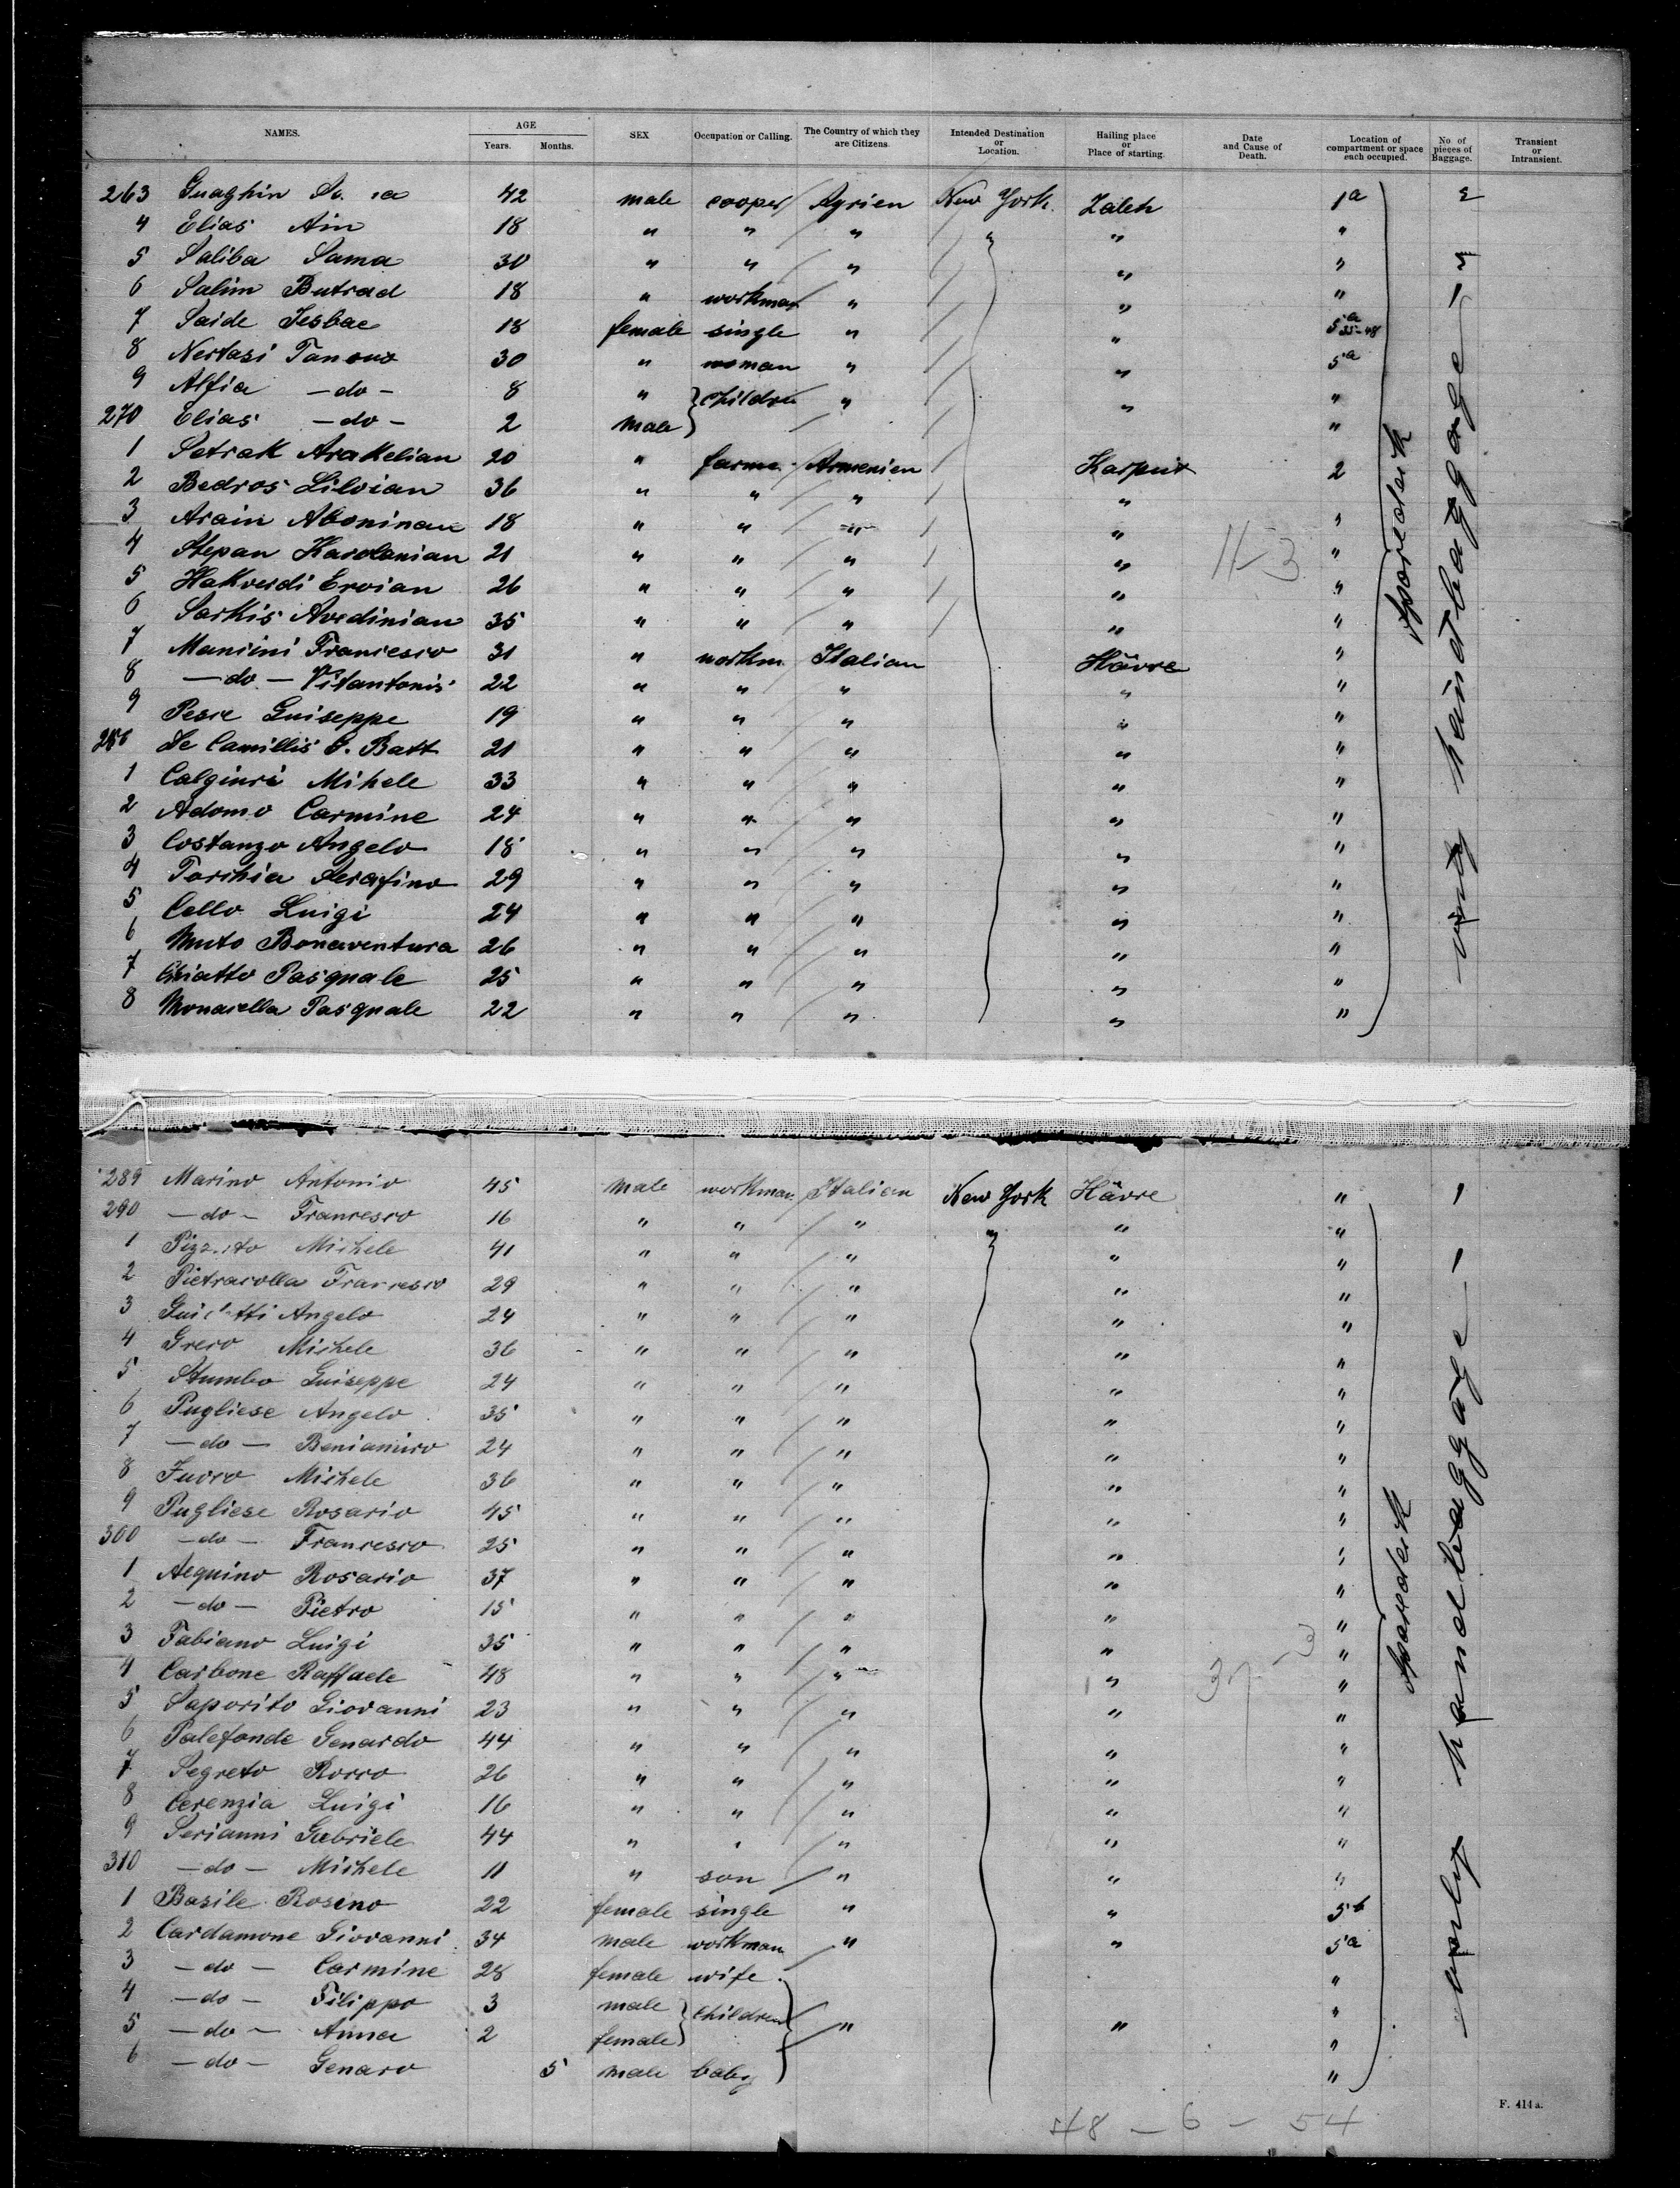 NAMES. AGE Years. Months. SEX Occupation or Calling. The Country of which they are Citizens. Intended Destination or Location. Hailing place or Place of starting. Date and Cause of Death. Location of compartment or space each occupied. No. of pieces of Baggage. Transient or Intransient.
263 Guaghin 42 male cooper Syrien New York. Zaleh 1a 2
4 Elias Ain 18 " " " " " "
5 Saliba Sama 30 " " " " "
6 Salim Butrad 18 " workman " " "
7 Saide Jesbae 18 female single " " 5a 35-48
8 Nertasi Tanous 30 " woman " " 5a
9 Alfia -do- 8 " children " " "
270 Elias -do- 2 male "
1 Setrak Arakelian 20 " farme Armenien Karput 2
2 Bedros Lilvian 36 " " " "
3 Arain Aboninan 18 " " " " "
4 Stepan Karolanian 21 " " " " "
5 Hakverdi Eroian 26 " " " " "
6 Sarkis Avedinian 35 " " " " "
7 Mancini Francesco 31 " workm. Italian Hâvre "
8 -do- Vitantonio 22 " " " " "
9 Pesce Guiseppe 19 " " " " "
280 De Camillis G. Batt 21 " " " " "
1 Calgiuri Mihele 33 " " " " "
2 Adomo Carmine 24 " " " " "
3 Costanzo Angelo 18 " " " " "
4 Torchia Serafino 29 " " " " "
5 Cello Luigi 24 " " " " "
6 Muto Bonaventura 26 " " " " "
7 Chiatto Pasquale 25 " " " " "
8 Monacella Pasquale 22 " " " " "
Sparedeck
only handbaggage
11-3
289 Marino Antonio 45 male workman Italian New York Hâvre " 1
290 -do- Francesco 16 " " " " " "
1 Michele 41 " " " " "
2 Pietracolla Francesco 29 " " " " "
3 Angelo 24 " " " " "
4 Greco Michele 36 " " " " "
5 Stumbo Guiseppe 24 " " " " "
6 Pugliese Angelo 35 " " " " "
7 -do- Beniamino 24 " " " " "
8 Fuoco Michele 36 " " " " "
9 Pugliese Rosario 45 " " " " "
300 -do- Francesco 25 " " " " "
1 Aequino Rosario 37 " " " " "
2 -do- Pietro 15 " " " " "
3 Fabiano Luigi 35 " " " " "
4 Carbone Raffaele 48 " " " " "
5 Saporito Giovanni 23 " " " " "
6 Palefonde Genardo 44 " " " " "
7 Segreto Rocco 26 " " " " "
8 Cerenzia Luigi 16 " " " " "
9 Serianni Gabriele 44 " " " " "
310 -do- Michele 11 " son " " "
1 Basile Rosino 22 female single " " 5b
2 Cardamone Giovanni 34 male workman " " 5a
3 -do- Carmine 28 female wife "
4 -do- Filippo 3 male children "
5 -do- Anna 2 female " " "
6 -do- Genaro 5 male baby "
Sparedeck
only handbaggage
37-3
48 - 6 - 54
F. 414a.